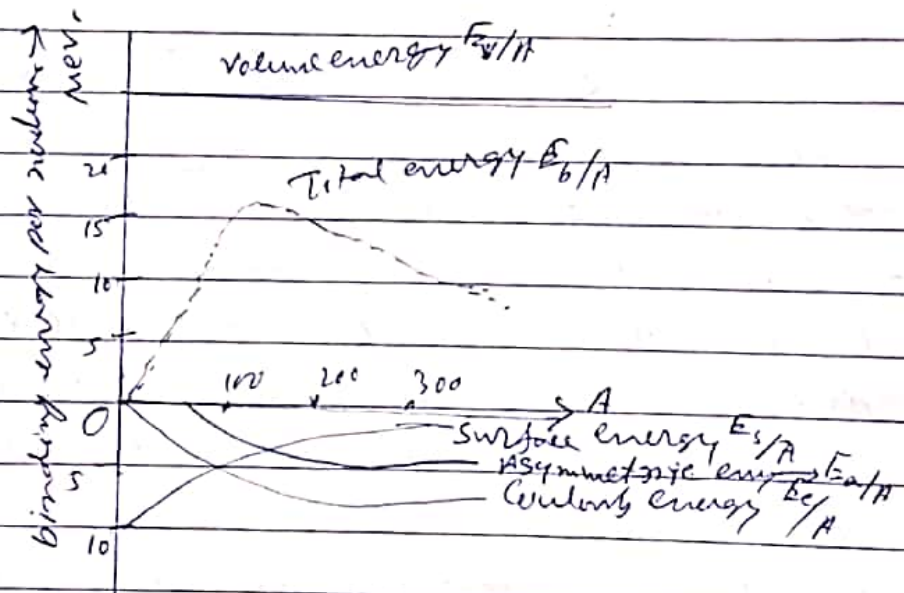 binding energy per nucleon →
MeV.
Volume energy Ev/A
20
Total energy Eb/A
15
10
5
100 200 300 A
0
Surface energy Es/A
5 Asymmetric energy Ea/A
Coulomb energy Ec/A
10